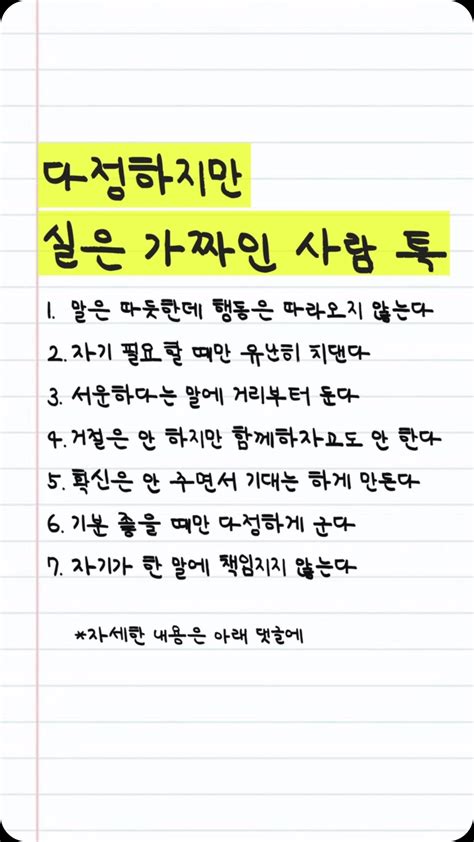 다정하지만
실은 가짜인 사람 특
1. 말은 따듯한데 행동은 따라오지 않는다
2. 자기 필요할 때만 유난히 치댄다
3. 서운하다는 말에 거리부터 둔다
4. 거절은 안 하지만 함께하자고도 안 한다
5. 확신은 안 주면서 기대는 하게 만든다
6. 기분 좋을 때만 다정하게 군다
7. 자기가 한 말에 책임지지 않는다
*자세한 내용은 아래 댓글에